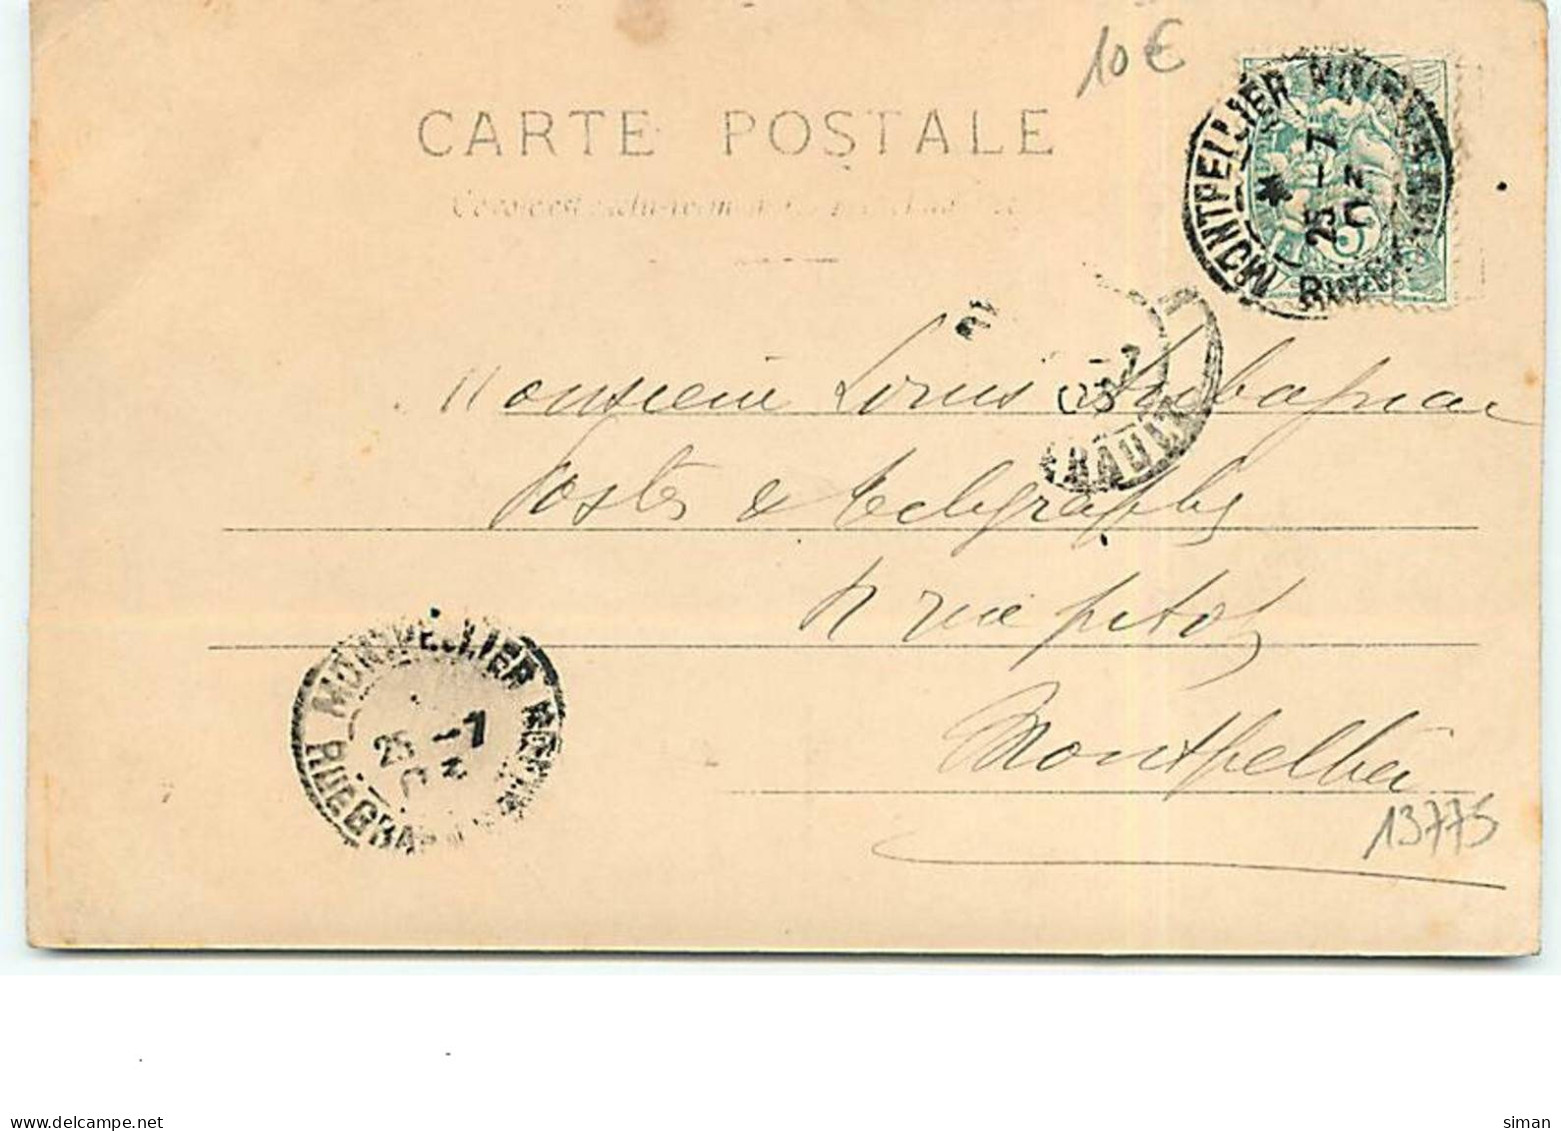 10€
CARTE POSTALE
MONTPELLIER
25 -7 03
5
-7 03
HÉRAULT
Monsieur Louis Aubagnac
Postes & Télégraphes
rue pitot
Montpellier
MONTPELLIER
25 -7
RUE GRA
13775
www.delcampe.net
siman